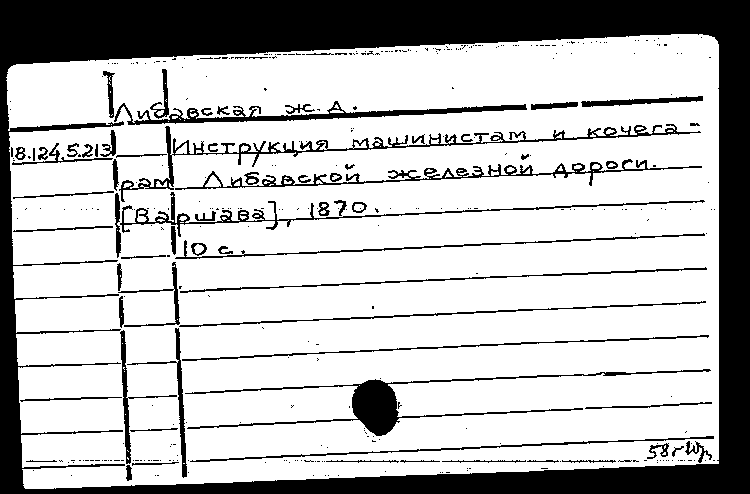 Либавская ж. д.
18.124.5.213 Инструкция машинистам и кочега-
рам Либавской железной дороги.
[Варшава], 1870.
10 с.
58г